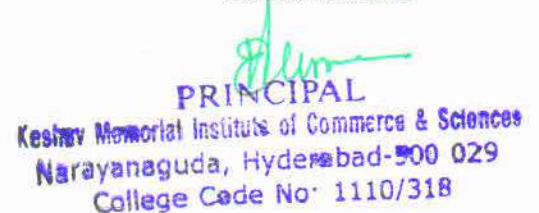 PRINCIPAL
Keshav Memorial Institute of Commerce & Sciences
Narayanaguda, Hyderabad-500 029
College Code No: 1110/318